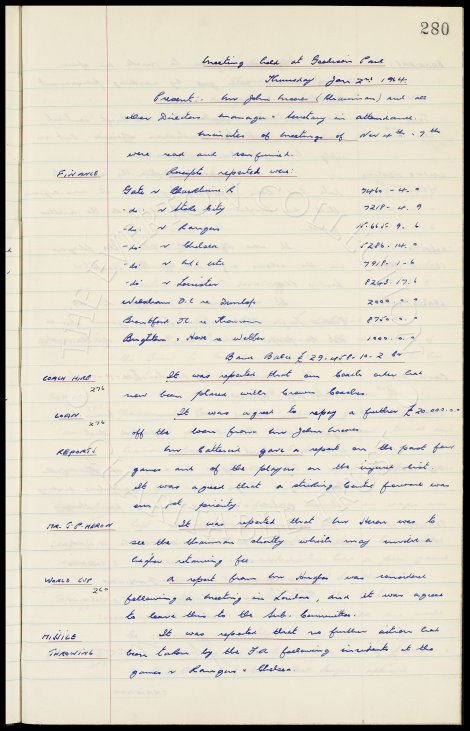 280
Meeting held at Goodison Park
Thursday Jan 2nd 1964
Present:- Mr John Moores (Chairman) and all
other Directors Manager & Secretary in attendance.
Minutes of meetings of Nov 4th - 7th
were read and confirmed.
FINANCE Receipts reported were:
Gate v Blackburn R 7460 - 4. 0
-do- v Stoke City 7218. 4. 9
-do- v Rangers 15.665. 9. 6
-do- v Chelsea 5286. 14. 0
-do- v 7918. 1. 6
-do- v Leicester 8243. 17. 6
Wrexham F.C. re Dunlop 2000. 0. 0
Brentford F.C. re Thomson 8750. 0. 0
Brighton & Hove re Webber 1000. 0. 0
Bank Balce £ 29.458. 10. 2
COACH HIRE It was reported that our Coach order had
276 now been placed with Crown Coaches.
LOAN It was agreed to repay a further £20.000.00
274 off the loan from Mr John Moores.
REPORTS Mr Catterick gave a report on the past four
games and of the players on the injured list.
It was agreed that a striking Centre forward was
our 1st priority.
MR. T. P. HERON It was reported that Mr Heron was to
see the Chairman shortly which may involve a
higher retaining fee.
WORLD CUP A report from Mr Hughes was considered
260 following a meeting in London, and it was agreed
to leave this to the Sub. Committee.
MISSILE It was reported that no further action had
THROWING been taken by the FA following incidents at the
games v Rangers & Chelsea.
THE EVERTON COLLECTION